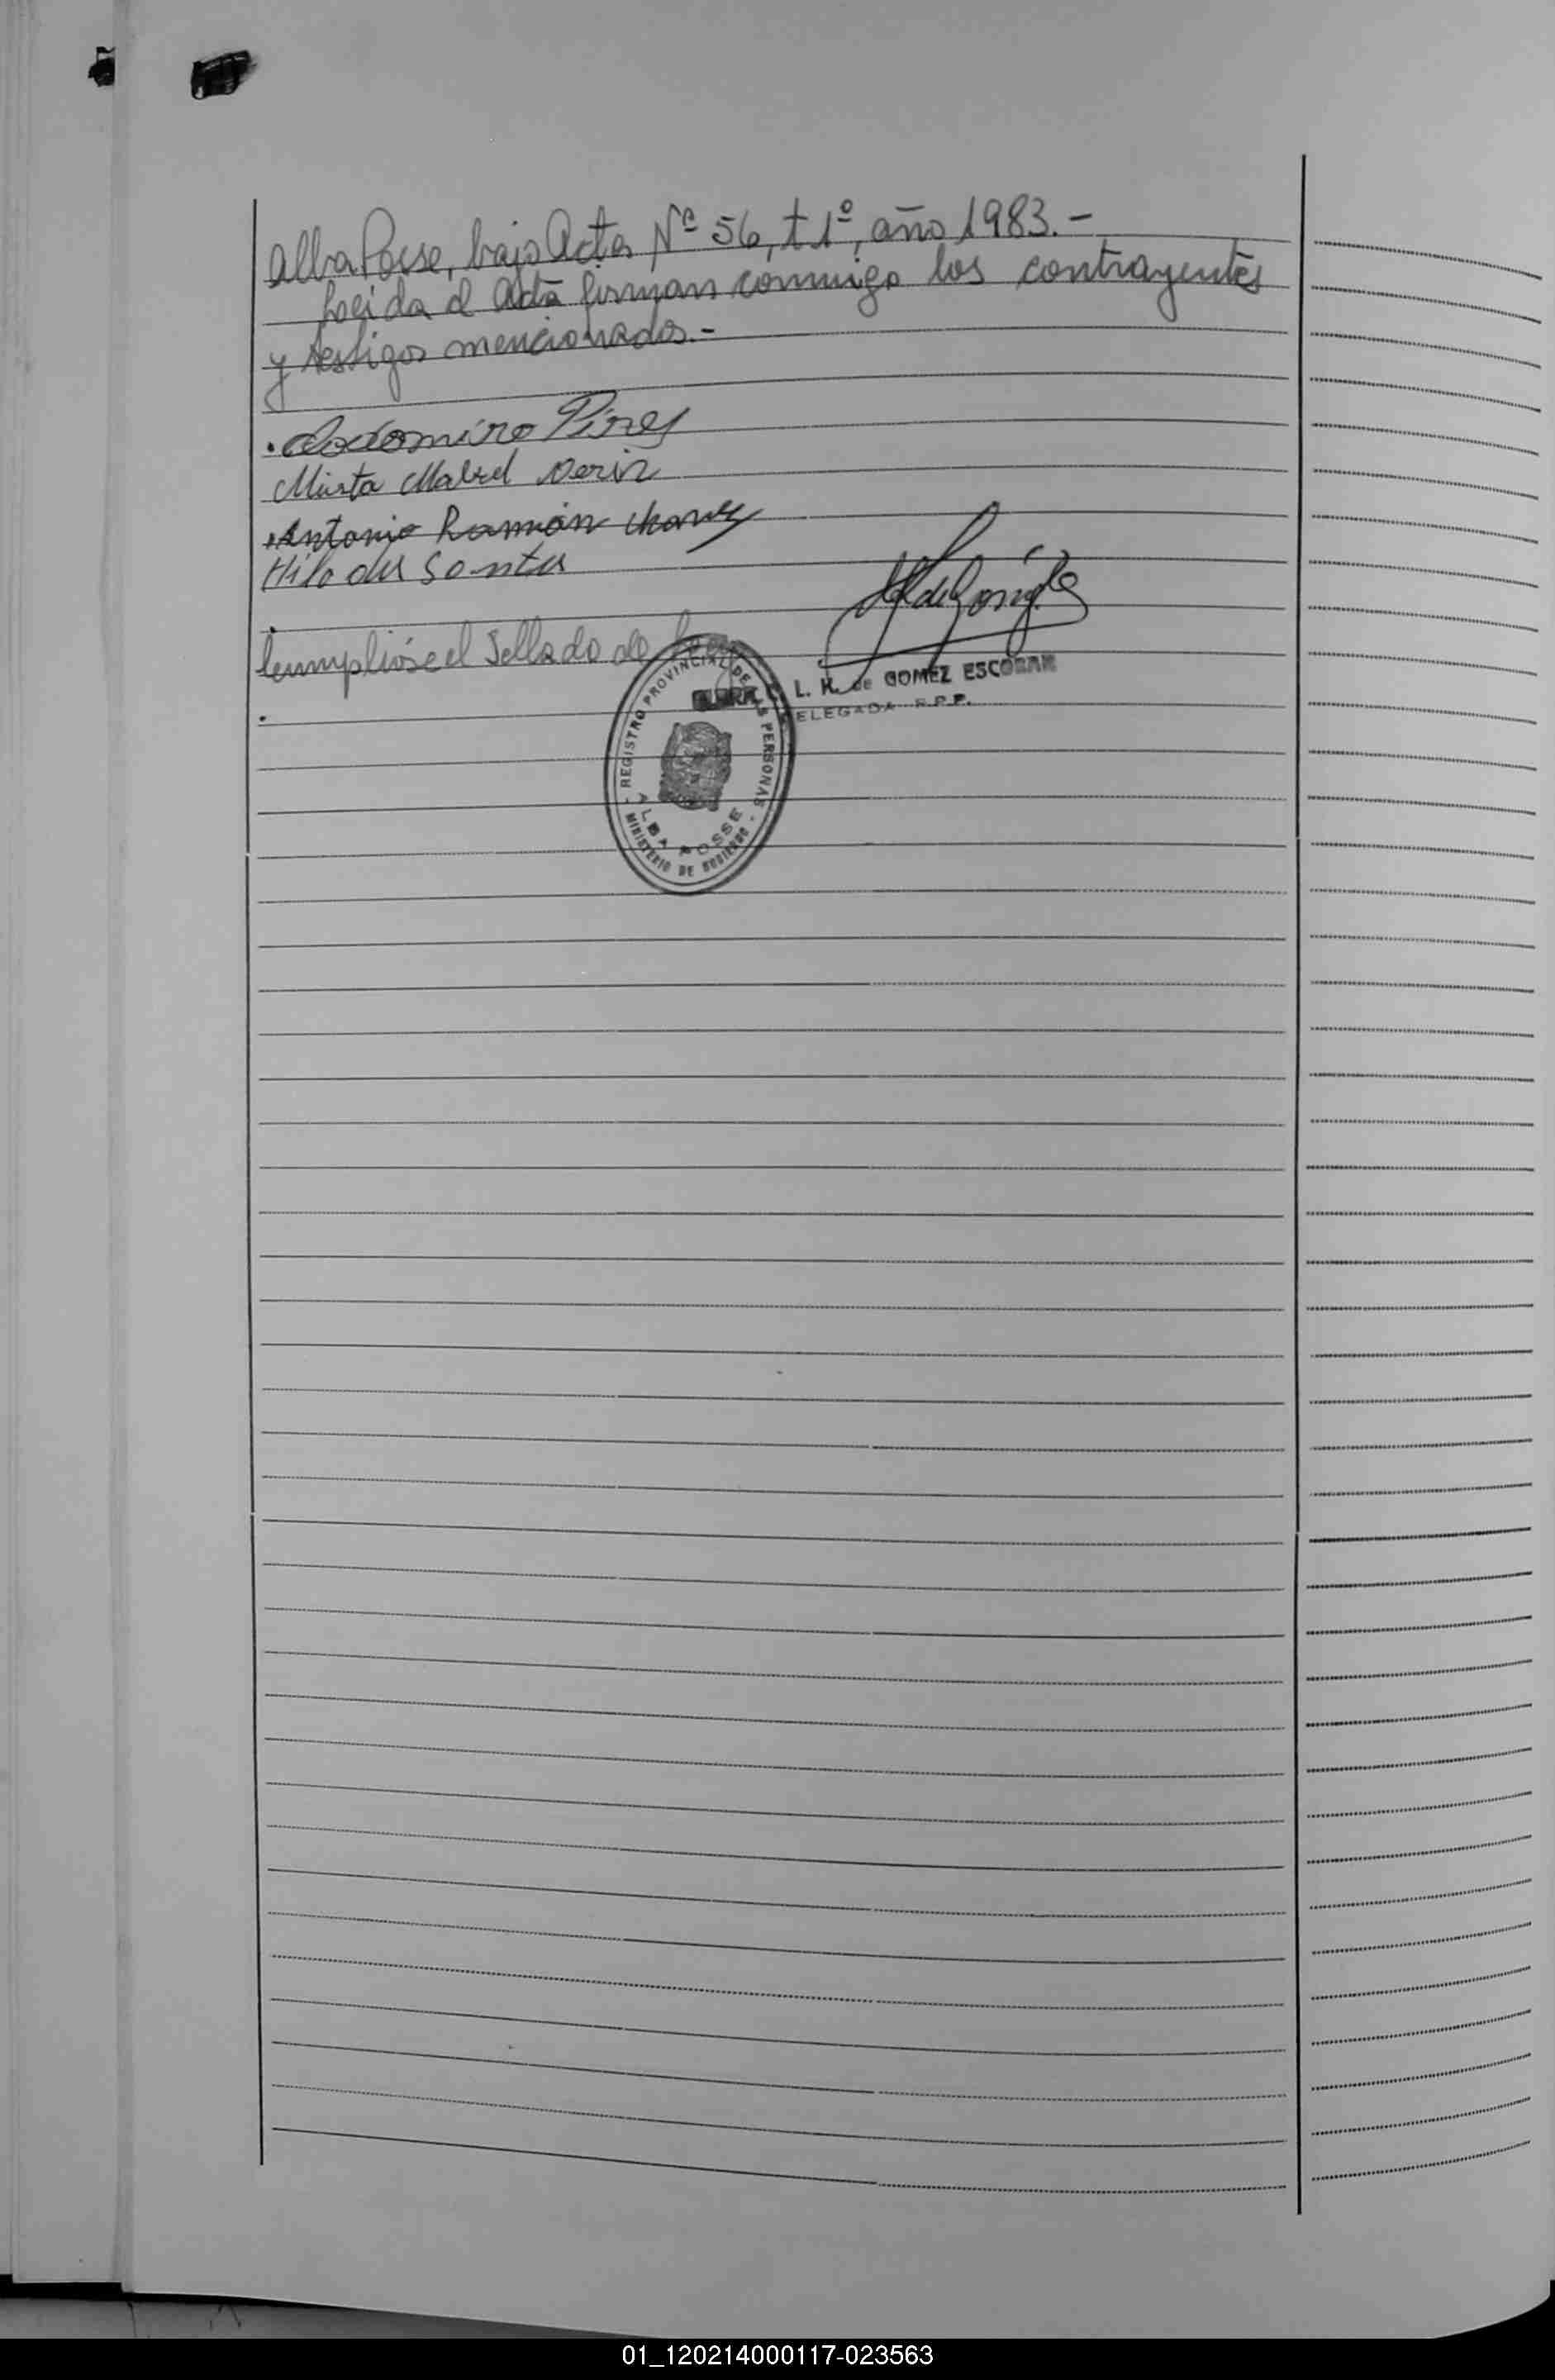 Alba Posse, bajo Acta Nº 56, t 1º, año 1983.-
Leida el Acta firman conmigo los contrayentes
y testigos mencionados.-
Lodomiro Pires
Mirta Mabel
Antonio Ramón Chavez
Hilo
Cumplióse el Sellado de Ley
L. H. de GOMEZ ESCOBAR
DELEGADA R.P.P.
REGISTRO PROVINCIAL DE LAS PERSONAS
ALBA POSSE
- MINISTERIO DE GOBIERNO -
01_120214000117-023563